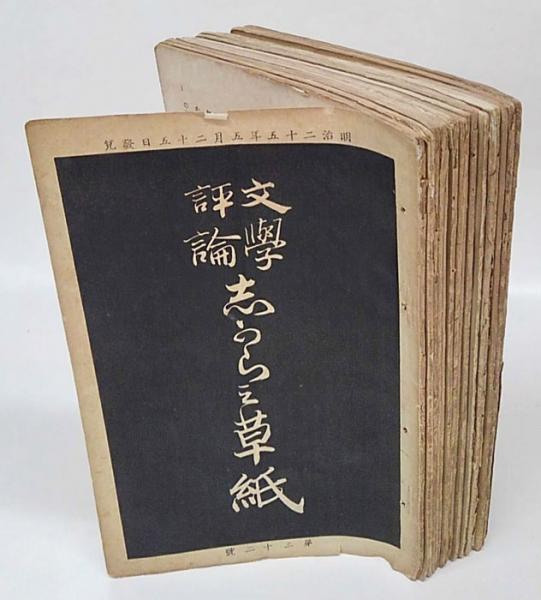 明治二十五年五月二十五日發兌
文學
評論
志からみ草紙
第三十二號